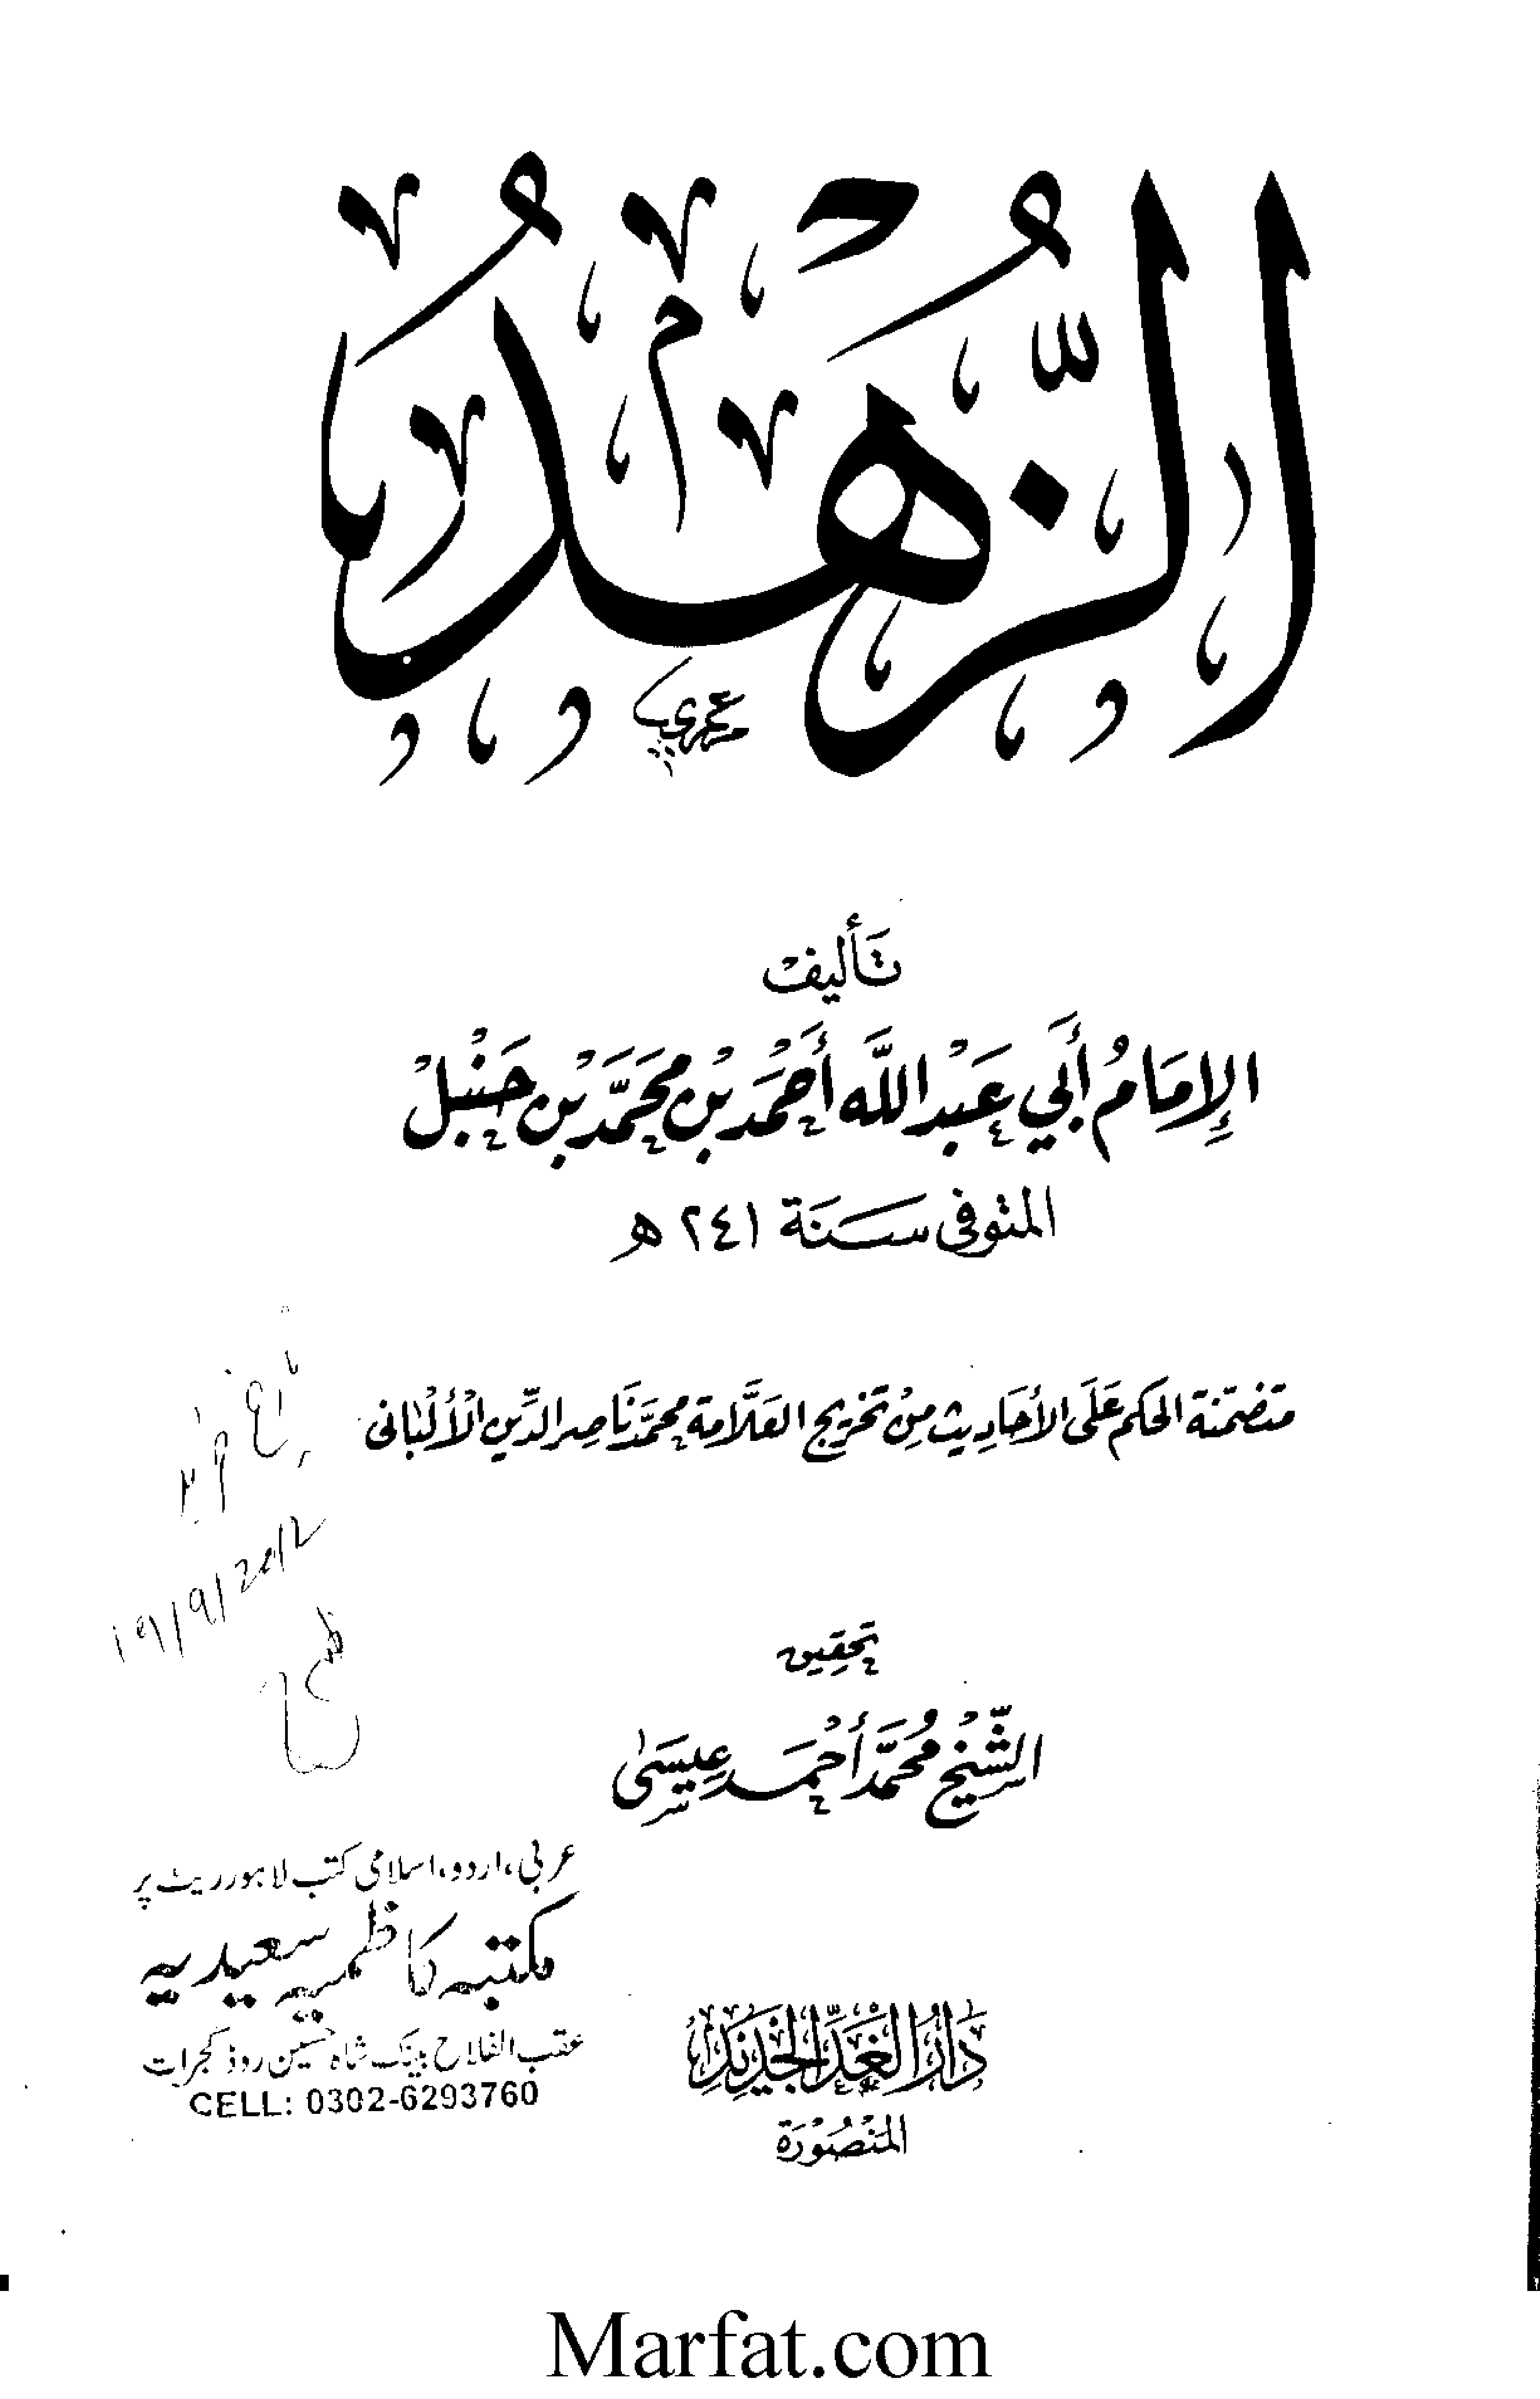 الزُّهْدُ
تَأليف
الإِمَامُ أَبِي عَبْدِ اللَّه أَحْمَد بْن مُحَمَّد بْن حَنْبَلْ
المتوفى سَنَة ٢٤١ هـ
متضمنة الحكم عَلَى الأحَادِيث مِنْ تَخْرِيج العَلَّامة مُحمَّد نَاصِر الدِّين الْأَلْبَانى
19/9/2012
تحقِيق
الشَّيْخ مُحَمَّد أَحْمَد عِيسَىٰ
عربی، اردو، اسلامی کتب لاہور ریٹ پر
مکتبہ کاظمیہ سعیدیہ
عقب الفلاح بینک شاہ حسین روڈ گجرات
CELL: 0302-6293760
دَارُ الْغَدِ الْجَدِيْدِ
المَنْصُوْرَة
Marfat.com